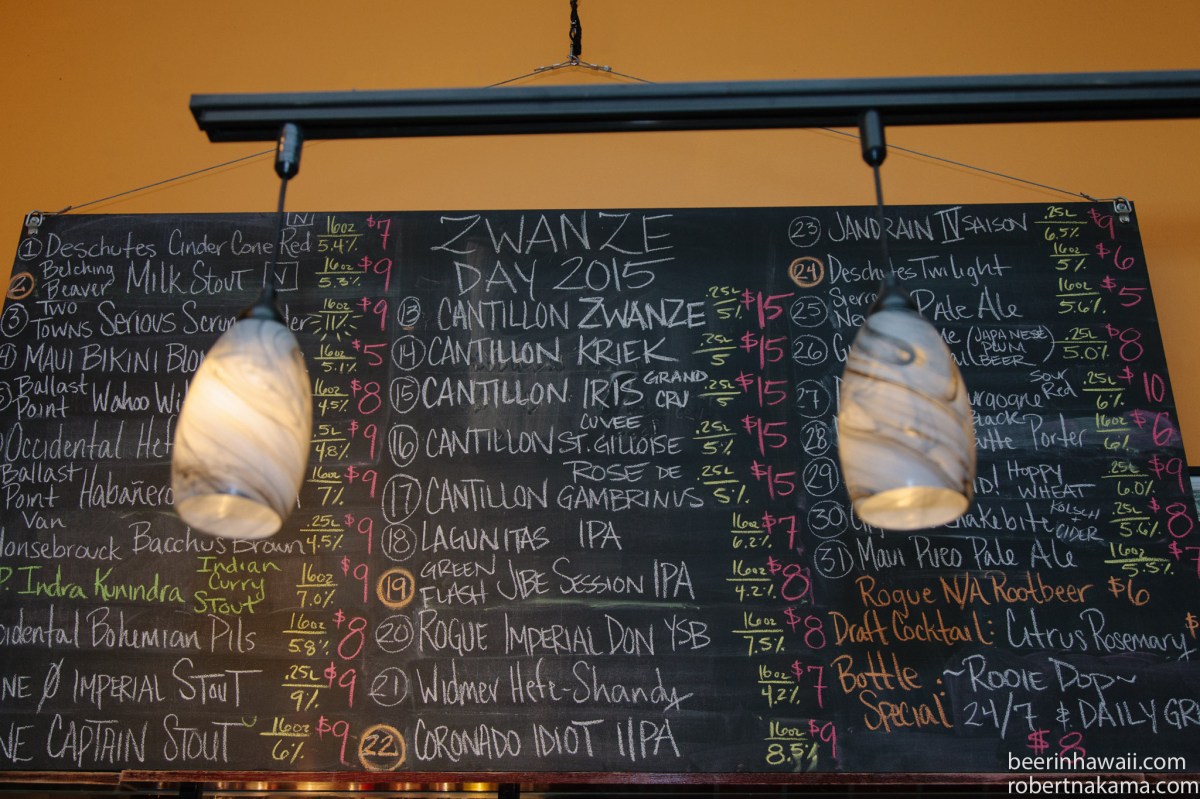 ① Deschutes Cinder Cone Red N 16oz 5.4% $7
2 Belching Beaver Milk Stout N 16oz 5.3% $9
③ Two Towns Serious 16oz 11% $9
4 Maui Bikini 16oz 5.1% $5
5 Ballast Point Wahoo 16oz 4.5% $8
Occidental .5L 4.8% $9
Ballast Point Habañero 16oz 7% $9
Van Honsebrouck Bacchus Brown .25L 4.5% $9
P. Indra Kunindra Indian Curry Stout 16oz 7.0% $9
Bohemian Pils 16oz 5.8% $8
Ø Imperial Stout .25L 9% $9
Captain Stout 16oz 6% $9
Zwanze
Day 2015
⑬ Cantillon Zwanze .25L 5% $15
⑭ Cantillon Kriek .25L 5 $15
⑮ Cantillon Iris Grand Cru .25L 5 $15
⑯ Cantillon Cuvee St. Gilloise .25L 5% $15
⑰ Cantillon Rose de Gambrinus .25L 5% $15
⑱ Lagunitas IPA 16oz 6.2% $7
⑲ Green Flash Jibe Session IPA 16oz 4.2% $8
⑳ Rogue Imperial Don YSB 16oz 7.5% $8
21 Widmer Hefe-Shandy 16oz 4.2% $7
22 Coronado Idiot IIPA 16oz 8.5% $9
23 Jandrain IV Saison .25L 6.5% $9
24 Deschutes Twilight 16oz 5% $6
25 Pale Ale 16oz 5.6% $5
26 (Japanese Plum Beer .25L 5.0% $8
27 Sour Red .25L 6% $10
28 Porter 16oz 6% $6
29 Hoppy Wheat .25L 6.0% $9
30 Snakebite Kolsch + Cider .25L 5.6% $8
31 Maui Pueo Pale Ale 16oz 5.5% $7
Rogue N/A Rootbeer $6
Draft Cocktail: Citrus Rosemary $
Bottle Special: ~Rooie Dop~
24/7 & Daily Gr
$8
beerinhawaii.com
robertnakama.com